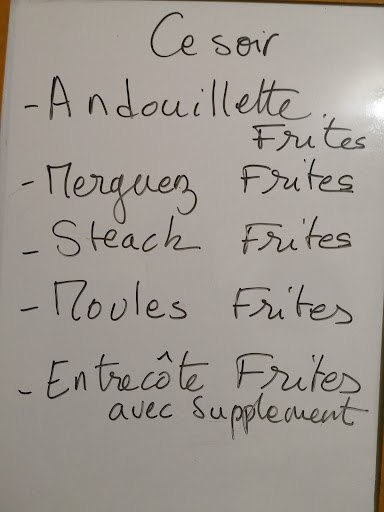 Ce soir
- Andouillette.
Frites
- Merguez Frites
- Steack Frites
- Moules Frites
- Entrecôte Frites
avec Supplement